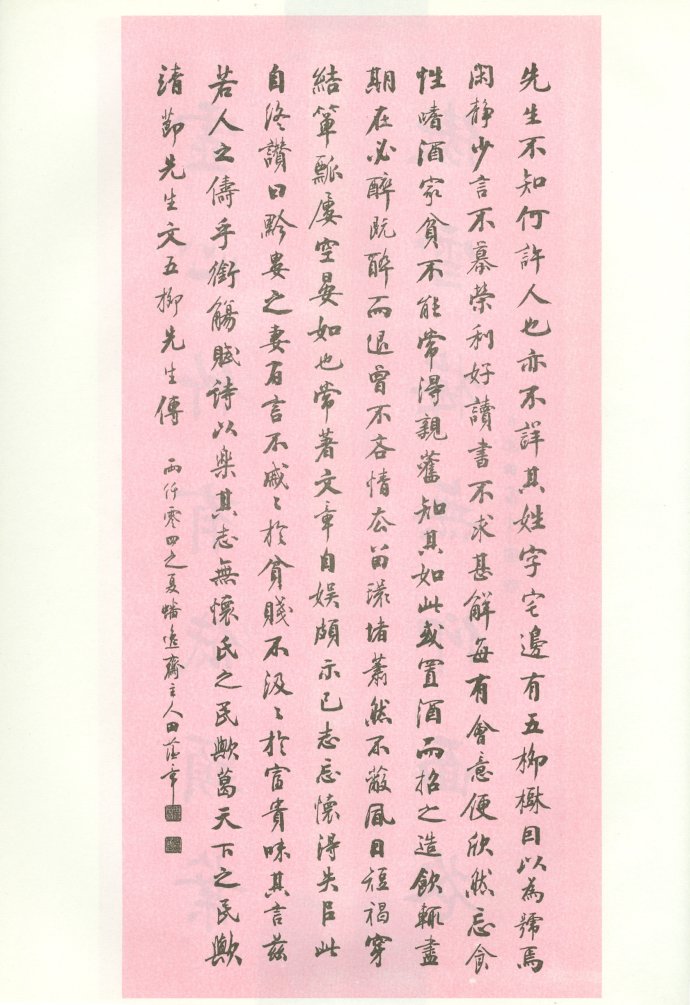 先生不知何許人也亦不詳其姓字宅邊有五柳樹因以為號焉
閑静少言不慕榮利好讀書不求甚解每有會意便欣然忘食
性嗜酒家貧不能常得親舊知其如此或置酒而招之造飲輒盡
期在必醉既醉而退曾不吝情去留環堵蕭然不蔽風日短褐穿
結簞瓢屢空晏如也常著文章自娱頗示己志忘懷得失以此
自終讚曰黔婁之妻有言不戚〻於貧賤不汲〻於富貴味其言兹
若人之儔乎銜觴賦诗以樂其志無懷氏之民歟葛天下之民歟
靖節先生文五柳先生傳
兩仟零四之夏蟠逸齋主人田蔭亭